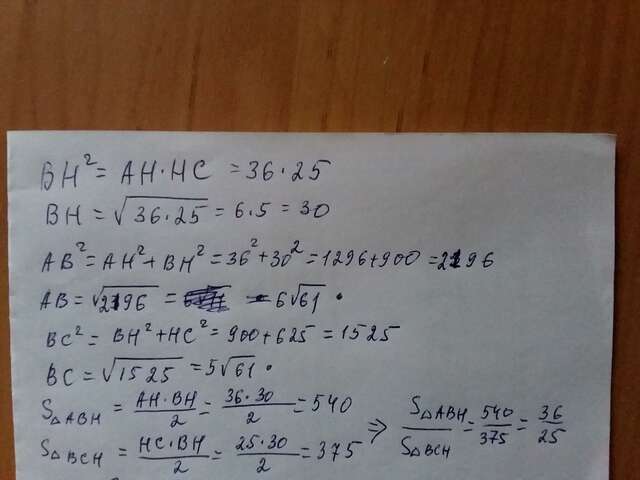 BH² = AH·HC = 36·25
BH = √36·25 = 6·5 = 30
AB² = AH² + BH² = 36² + 30² = 1296 + 900 = 2196
AB = √2196 = = 6√61 .
BC² = BH² + HC² = 900 + 625 = 1525
BC = √1525 = 5√61 .
S△ABH = AH·BH/2 = 36·30/2 = 540
S△BCH = HC·BH/2 = 25·30/2 = 375
⇒ S△ABH/S△BCH = 540/375 = 36/25